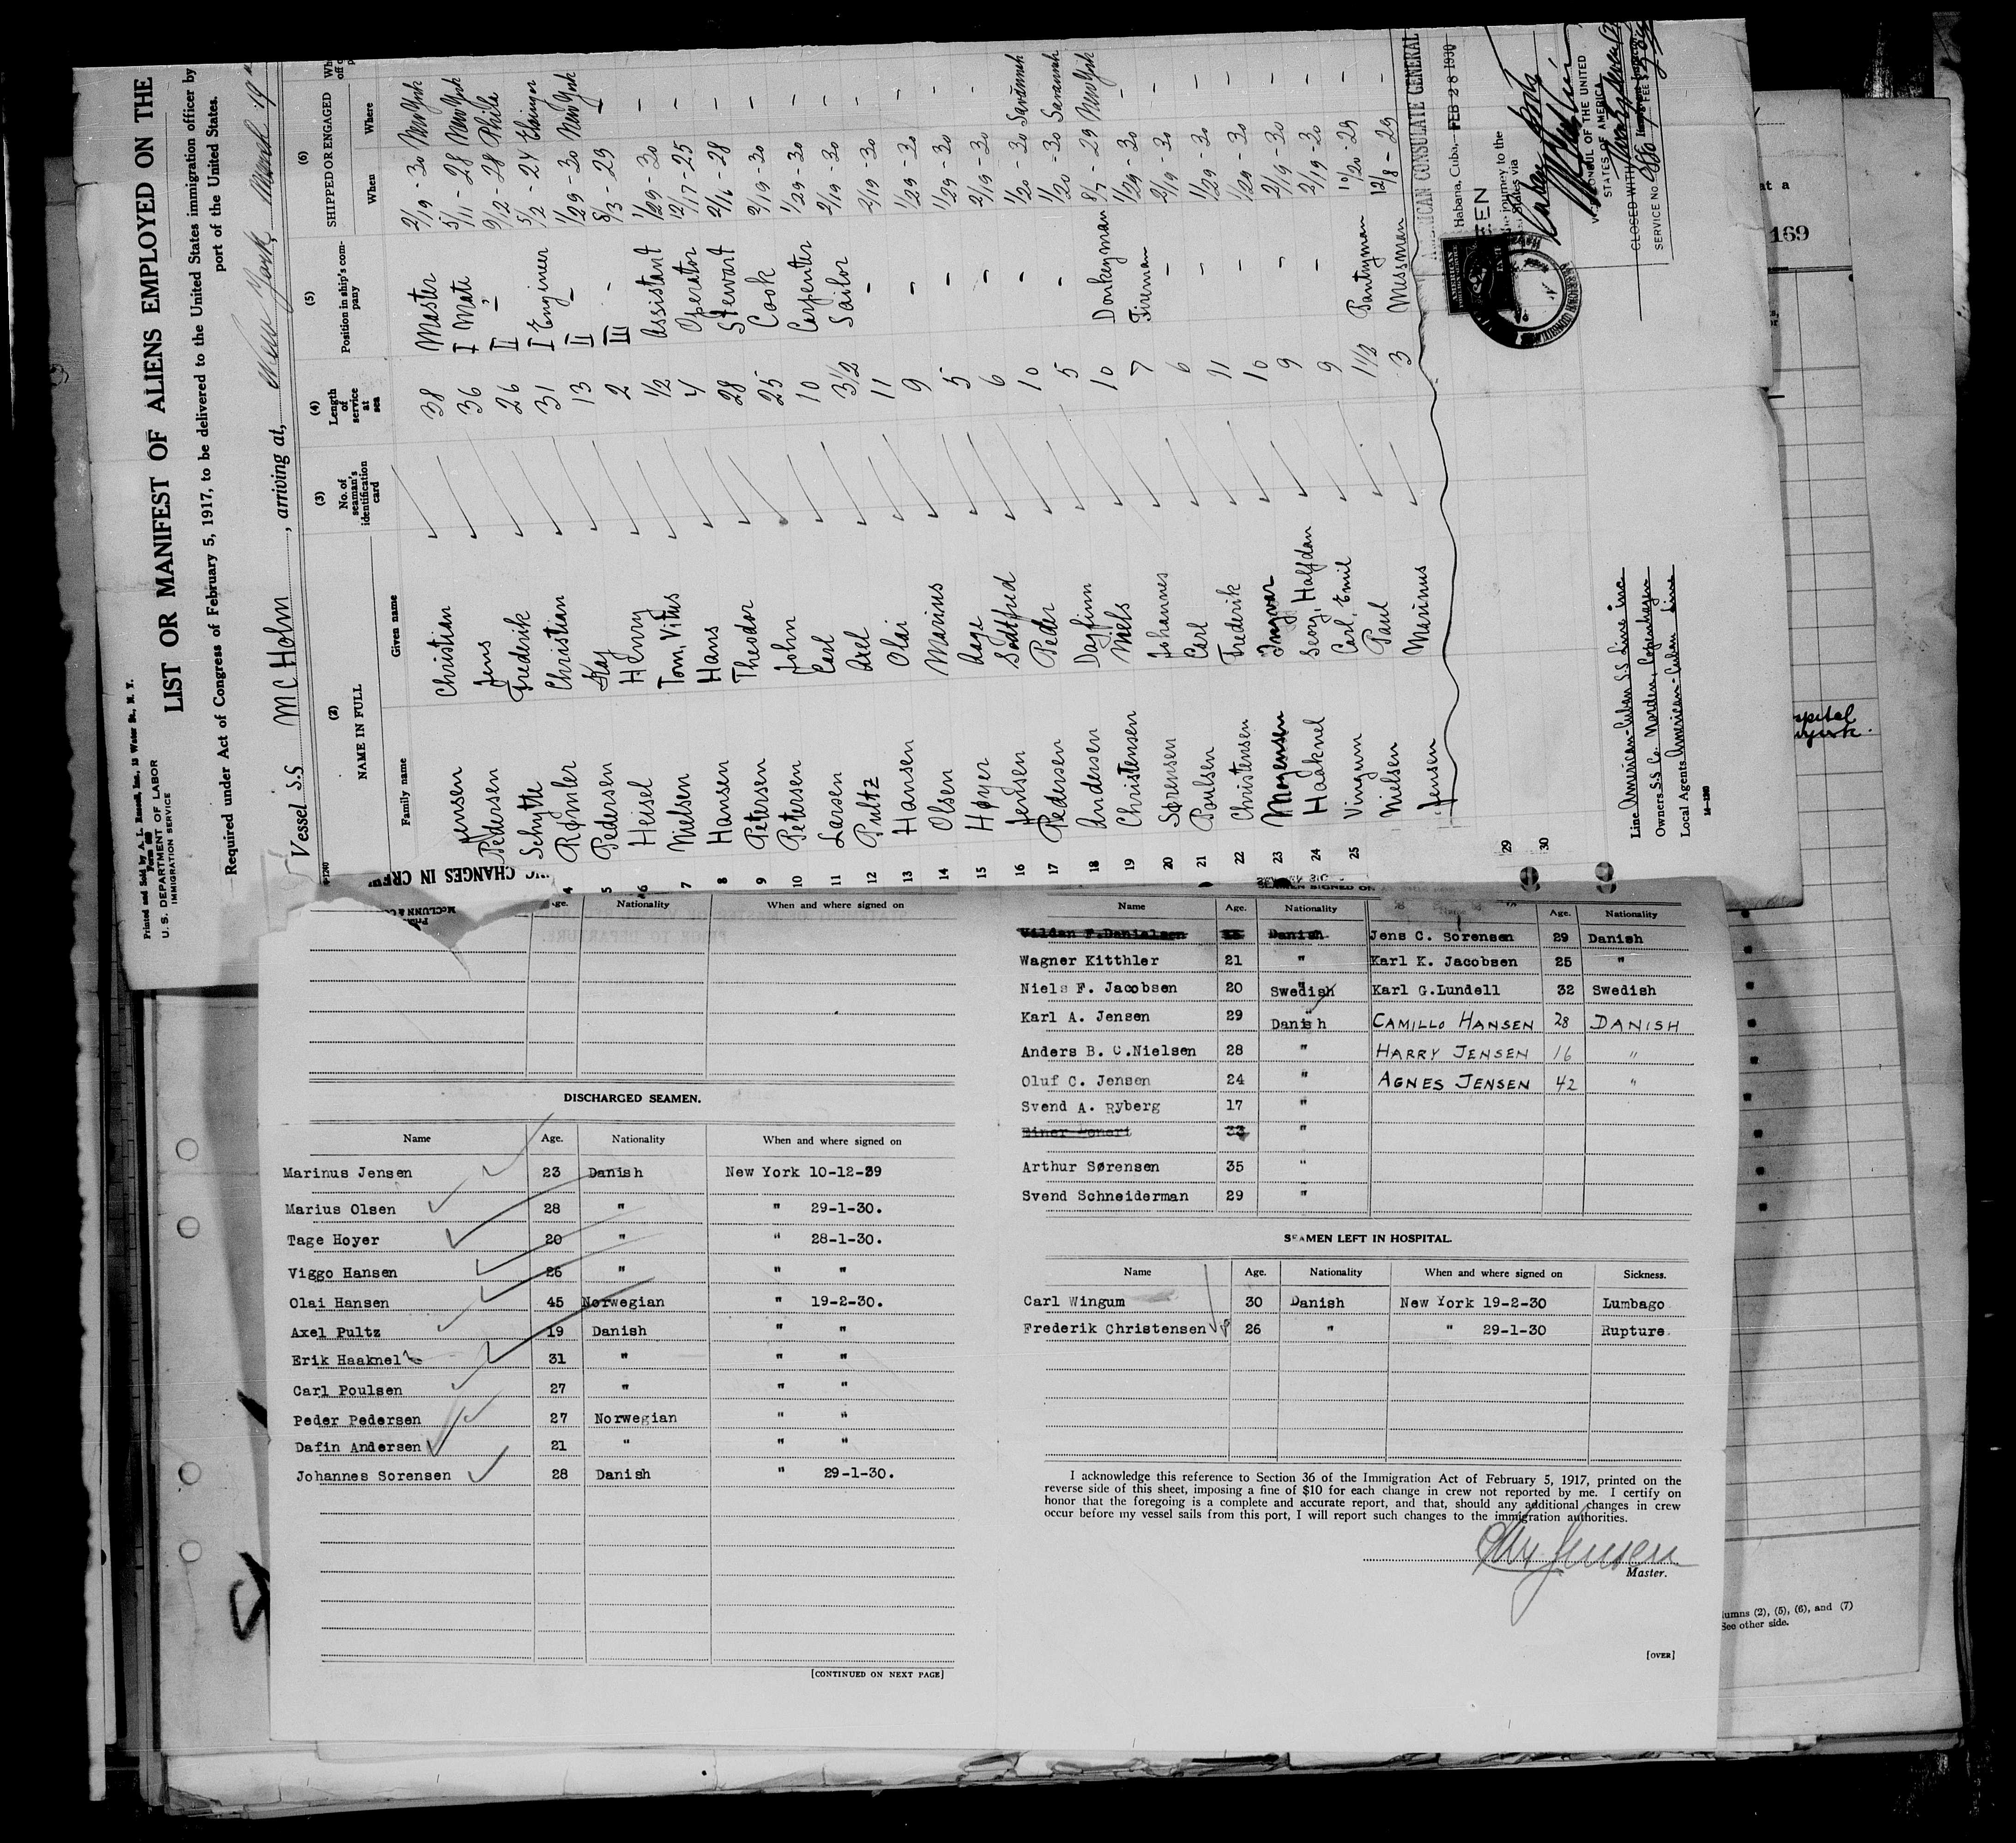 Printed and Sold by A. L. Russell, Inc., 13 Water St., N. Y.
Form 689
U. S. DEPARTMENT OF LABOR
IMMIGRATION SERVICE
LIST OR MANIFEST OF ALIENS EMPLOYED ON THE
Required under Act of Congress of February 5, 1917, to be delivered to the United States immigration officer by
port of the United States.
Vessel S.S McHolm, arriving at, New York, March 19
(2) NAME IN FULL (3) No. of seaman's identification card (4) Length of service at sea (5) Position in ship's company (6) SHIPPED OR ENGAGED
Family name Given name When Where
Jensen Christian 38 Master 2/19-30 New York
Pedersen Jens 36 I Mate 5/11-28 New York
Schytte Frederik 26 II - 9/12-28 Phila
4 Rømler Christian 31 I Engineer 5/2-24
5 Pedersen Kaj 13 II - 1/29-30 New York
6 Heisel Henry 2 III - 8/3-29 -
7 Nielsen Tom, Vitus 1/2 Assistant 1/29-30 -
8 Hansen Hans 4 Operator 12/17-25 -
9 Petersen Theodor 28 Stewart 2/16-28 -
10 Petersen John 25 Cook 2/19-30 -
11 Larsen Carl 10 Carpenter 1/29-30 -
12 Pultz Axel 3 1/2 Sailor 2/19-30 -
13 Hansen Olai 11 - 2/19-30 -
14 Olsen Marius 9 - 1/29-30 -
15 Høyer Aage 5 - 1/29-30 -
16 Jensen Godtfred 6 - 2/19-30 -
17 Pedersen Peder 10 - 1/20-30 Savannah
18 Andersen Dagfinn 5 - 1/20-30 Savannah
19 Christensen Niels 10 Donkeyman 8/7-29 New York
20 Sørensen Johannes 7 Fireman 1/29-30 -
21 Poulsen Carl 6 - 2/19-30 -
22 Christensen Frederik 11 - 1/29-30 -
23 Mogensen Ingvar 10 - 1/29-30 -
24 Haaknel Georg, Halfdan 9 - 2/19-30 -
25 Vingum Carl, Emil 9 - 2/19-30 -
Nielsen Paul 1 1/2 Pantryman 10/20-29 -
Jensen Marinus 3 Messman 12/8-29 -
29
30
AMERICAN CONSULATE GENERAL
Habana, Cuba, FEB 28 1930
SEEN
the journey to the
States via
VICE CONSUL OF THE UNITED
STATES OF AMERICA
SERVICE NO.
Line American-Cuban S.S Line inc
Owners S.S Co. Norden, Copenhagen
Local Agents American-Cuban Line
169
CHANGES IN CREW
Age. Nationality When and where signed on
DISCHARGED SEAMEN.
Name Age. Nationality When and where signed on
Marinus Jensen 23 Danish New York 10-12-29
Marius Olsen 28 " " 29-1-30.
Tage Hoyer 20 " " 28-1-30.
Viggo Hansen 26 " " "
Olai Hansen 45 Norwegian " 19-2-30.
Axel Pultz 19 Danish " "
Erik Haaknel 31 " " "
Carl Poulsen 27 " " "
Peder Pedersen 27 Norwegian " "
Dafin Andersen 21 " " "
Johannes Sorensen 28 Danish " 29-1-30.
[CONTINUED ON NEXT PAGE]
Name Age. Nationality Name Age. Nationality
Vildan F.Danielsen Danish Jens C. Sorensen 29 Danish
Wagner Kitthler 21 " Karl K. Jacobsen 25 "
Niels F. Jacobsen 20 Swedish Karl G.Lundell 32 Swedish
Karl A. Jensen 29 Danish CAMILLO HANSEN 28 DANISH
Anders B. C.Nielsen 28 " HARRY JENSEN 16 "
Oluf C. Jensen 24 " AGNES JENSEN 42 "
Svend A. Ryberg 17 "
33 "
Arthur Sørensen 35 "
Svend Schneiderman 29 "
SEAMEN LEFT IN HOSPITAL.
Name Age. Nationality When and where signed on Sickness.
Carl Wingum 30 Danish New York 19-2-30 Lumbago
Frederik Christensen 26 " " 29-1-30 Rupture
I acknowledge this reference to Section 36 of the Immigration Act of February 5, 1917, printed on the
reverse side of this sheet, imposing a fine of $10 for each change in crew not reported by me. I certify on
honor that the foregoing is a complete and accurate report, and that, should any additional changes in crew
occur before my vessel sails from this port, I will report such changes to the immigration authorities.
Chr Jensen
Master.
[OVER]
lumns (2), (5), (6), and (7)
See other side.